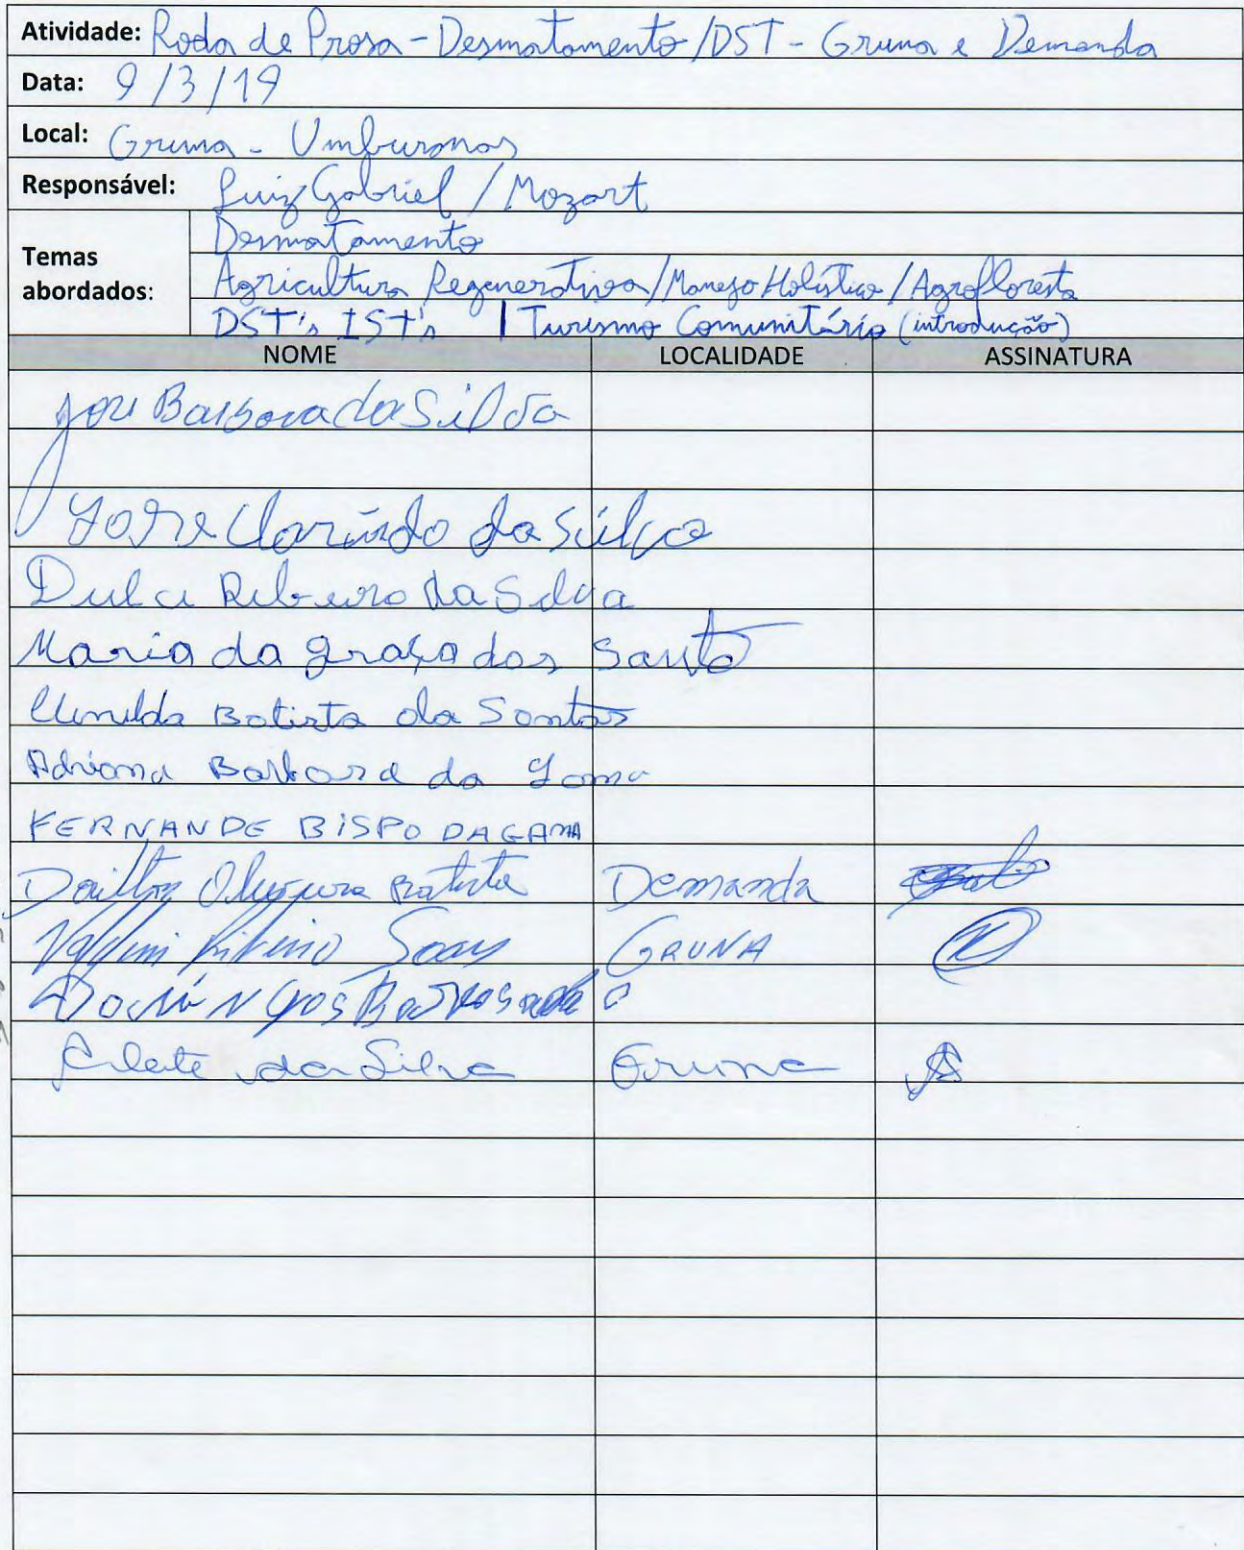 Atividade: Roda de Prosa - Desmatamento/DST - Gruna e Demanda
Data: 9/3/19
Local: Gruna - Umburanas
Responsável: Luiz Gabriel / Mozart
Temas abordados:
Desmatamento
Agricultura Regenerativa/Manejo Holístico/Agrofloresta
DST's IST's | Turismo Comunitário (introdução)
NOME LOCALIDADE ASSINATURA
José Barbosa da Silva
José Clarindo da Silva
Dulce Ribeiro da Silva
Maria da graça dos Santo
Batista da Santos
Adriana Barbosa da Gama
FERNANDE BISPO DAGAMA
Dailton Oliveira Batista Demanda
Ribeiro Soares GRUNA

da Silva Gruna